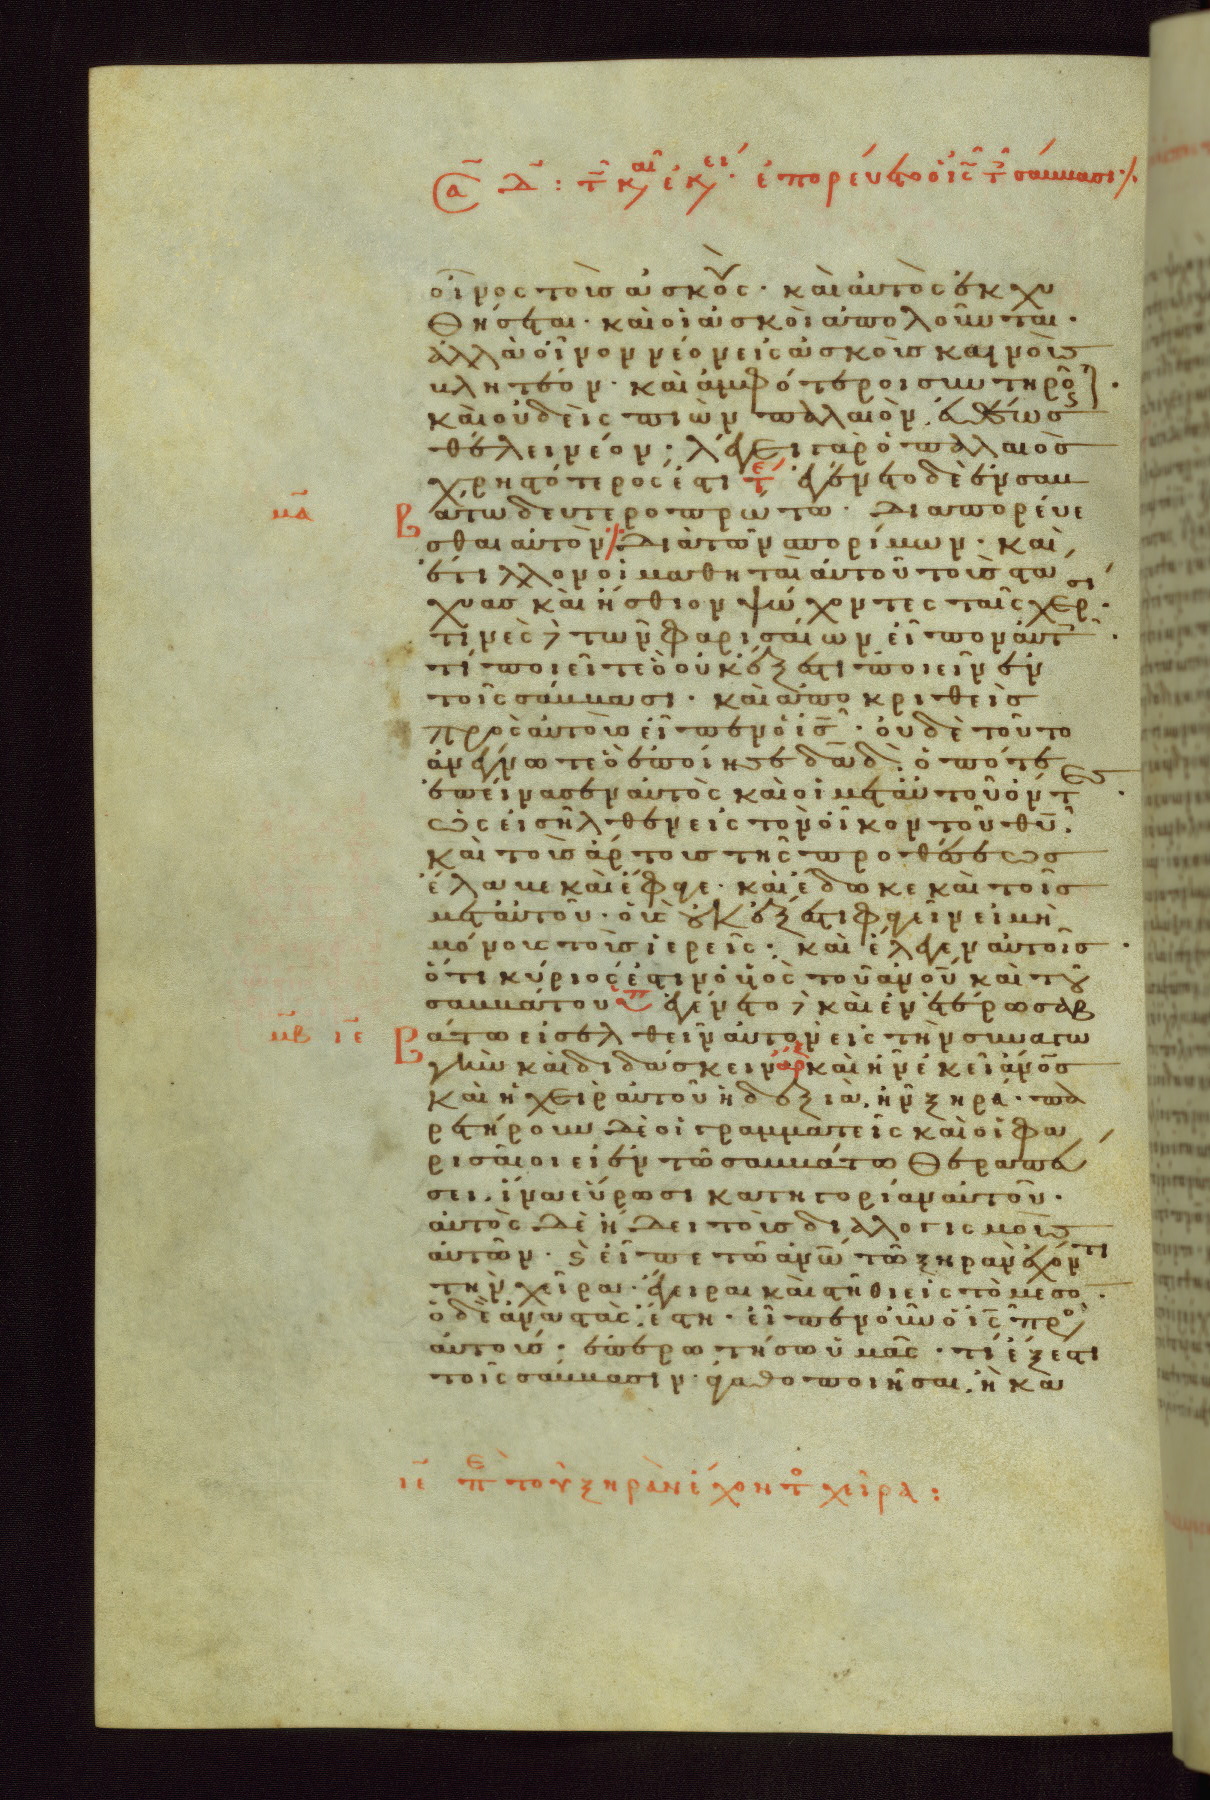 α Δ : τ κ αι εκει· ἐπορεύετο ὁ ις τ σάββασι
οἶνος τοὺς ἀσκούς · καὶ αὐτὸς ἐκχυ
θήσεται · καὶ οἱ ἀσκοὶ ἀπολοῦνται ·
ἀλλὰ οἶνον νέον εἰς ἀσκοὺς καινοὺς
βλητέον · καὶ ἀμφότεροι συντηροῦν ·
καὶ οὐδεὶς πιὼν παλαιὸν, εὐθέως
θέλει νέον · λέγει γὰρ ὁ παλαιὸς
χρηστότερός ἐστι τε ἐγένετο δὲ ἐν σαβ
μα βάτω δευτεροπρώτω · διαπορεύε
σθαι αὐτὸν διὰ τῶν σπορίμων · καὶ
ἔτιλλον οἱ μαθηταὶ αὐτοῦ τοὺς στά
χυας καὶ ἤσθιον ψώχοντες ταῖς χερσί ·
τινὲς δὲ τῶν φαρισαίων εἶπον αὐτ ·
τί ποιεῖτε ὃ οὐκ ἔξεστι ποιεῖν ἐν
τοῖς σάββασι · καὶ ἀποκριθεὶς
πρὸς αὐτοὺς εἶπεν ὁ ις · οὐδὲ τοῦτο
ἀνέγνωτε ὃ ἐποίησε δαδ, ὁπότε
ἐπείνασεν αὐτὸς καὶ οἱ μετ αὐτοῦ ὄντες ·
ὡς εἰσῆλθεν εἰς τὸν οἶκον τοῦ θυ ·
καὶ τοὺς ἄρτους τῆς προθέσεως
ἔλαβε καὶ ἔφαγε · καὶ ἔδωκε καὶ τοῖς
μετ αὐτοῦ · οὓς οὐκ ἔξεστι φαγεῖν εἰ μὴ
μόνους τοὺς ἱερεῖς · καὶ ἔλεγεν αὐτοῖς ·
ὅτι κύριός ἐστιν ὁ υἱὸς τοῦ ανου καὶ τοῦ
σαββάτου ἐγένετο δὲ καὶ ἐν ἑτέρω σαβ
μβ ιε βάτω εἰσελθεῖν αὐτὸν εἰς τὴν συναγω
γὴν καὶ διδάσκειν αρ καὶ ἦν ἐκεῖ ανος
καὶ ἡ χεὶρ αὐτοῦ ἡ δεξιὰ, ἦν ξηρά · πα
ρετήρουν δὲ οἱ γραμματεῖς καὶ οἱ φα
ρισαῖοι εἰ ἐν τῶ σαββάτω θεραπεύ
σει, ἵνα εὕρωσι κατηγορίαν αὐτοῦ ·
αὐτὸς δὲ ἤδει τοὺς διαλογισμοὺς
αὐτῶν · καὶ εἶπε τῶ ανω τῶ ξηρὰν ἔχοντι
τὴν χεῖρα · ἔγειραι καὶ στῆθι εἰς τὸ μέσο ·
ὁ δὲ ἀναστὰς, ἔστη · εἶπεν οὖν ὁ ις πρὸς
αὐτούς · ἐπερωτήσω ὑμᾶς · τί ἔξεστι
τοῖς σάββασιν · ἀγαθοποιῆσαι, ἢ κα
ιε πε τοῦ ξηρὰν ἔχοντο χεῖρα :